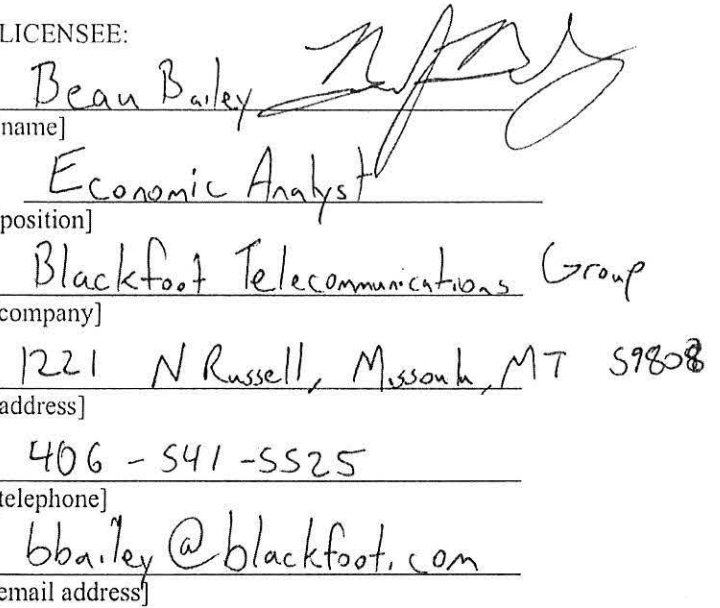 LICENSEE:
Beau Bailey
name]
Economic Analyst
position]
Blackfoot Telecommunications Group
company]
1221 N Russell, Missoula, MT 59808
address]
406-541-5525
telephone]
bbailey@blackfoot.com
email address]